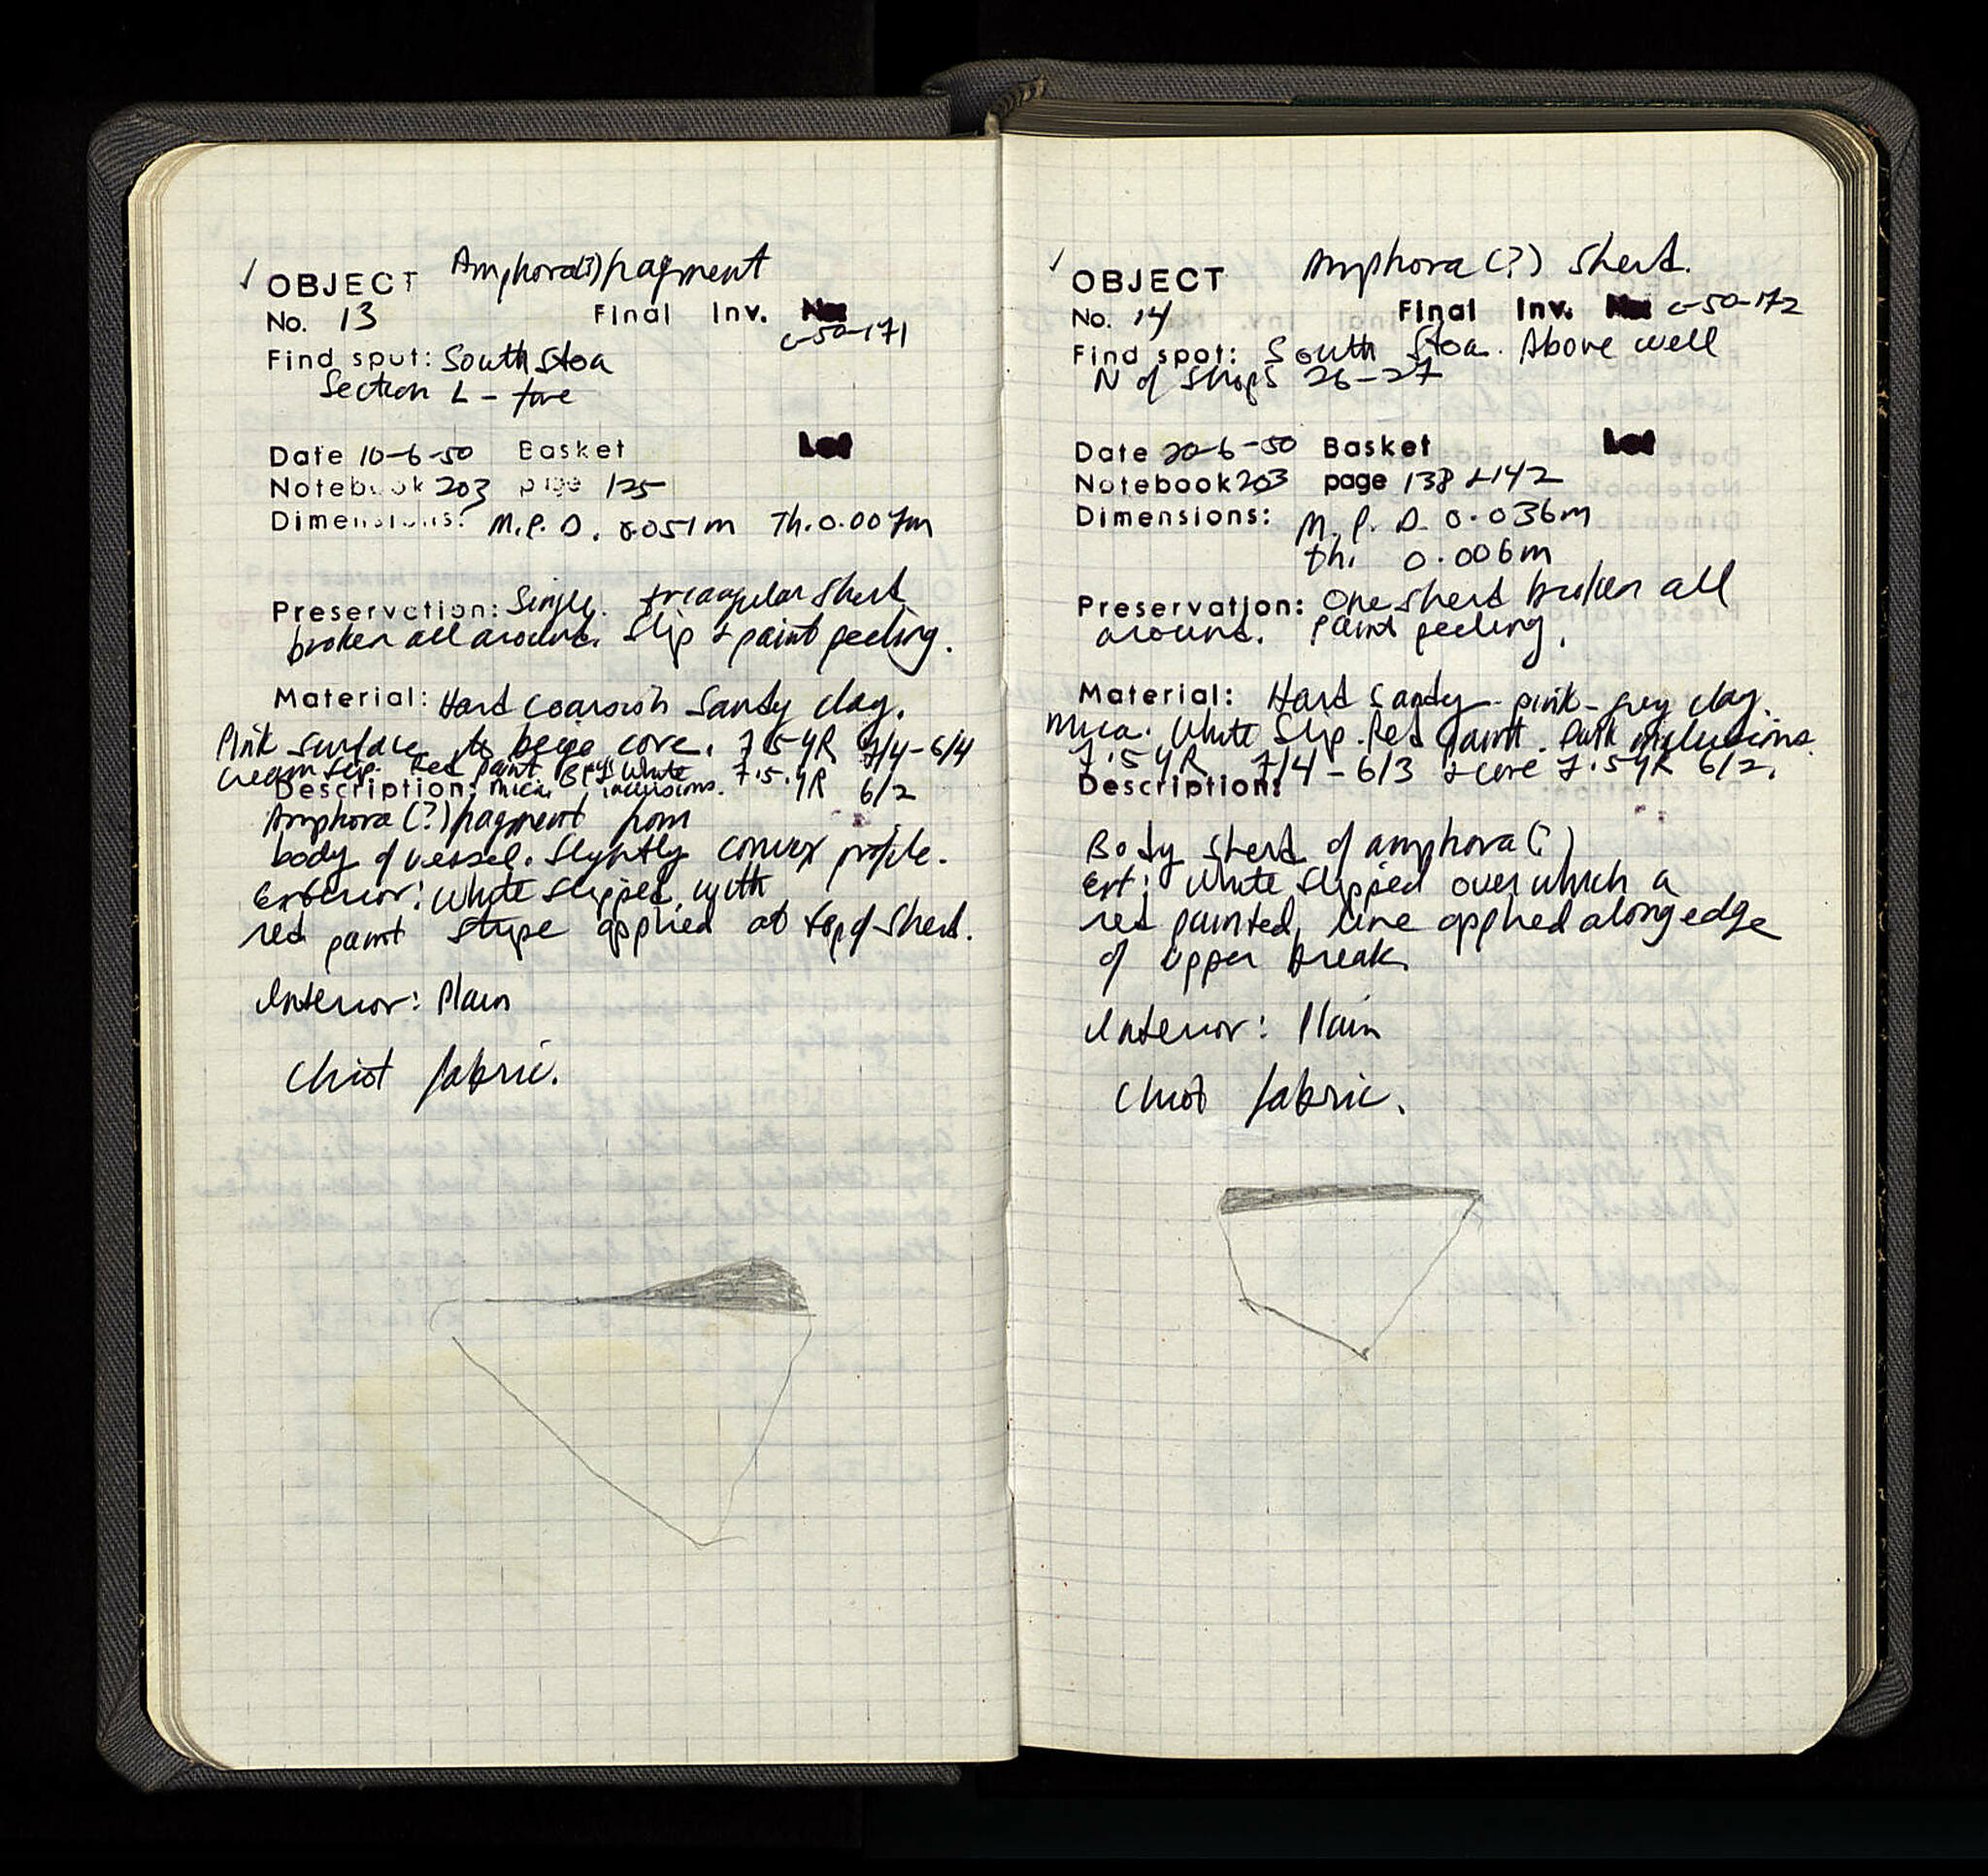 ✓ OBJECT Amphora(?) fragment
No. 13 Final Inv. No. C-50-171
Find spot: South Stoa
Section L -
Date 10-6-50 Basket Lot
Notebook 203 page 125
Dimensions: M.P.D. 0.051m Th. 0.007m
Preservation: Single. triangular sherd
broken all around. Slip & paint peeling.
Material: Hard coarsish Sandy clay.
Pink surface to beige core. 7.5YR 7/4-6/4
Cream slip. Red paint. Grey & white 7.5.YR 6/2
Description: mica. inclusions.
Amphora (?) fragment from
body of vessel. Slightly convex profile.
Exterior: White slipped, with
red paint stripe applied at top of sherd.
Interior: Plain
Chiot fabric.
✓ OBJECT Amphora (?) Sherd.
No. 14 Final Inv. No. C-50-172
Find spot: South Stoa. Above well
N of Shops 26-27
Date 20-6-50 Basket Lot
Notebook 203 page 138 & 142
Dimensions: M.P.D. 0.036m
th. 0.006m
Preservation: One sherd broken all
around. Paint peeling.
Material: Hard sandy pink-grey clay.
Mica. White Slip. Red paint. Dark inclusions.
7.5YR 7/4-6/3 & core 7.5YR 6/2.
Description:
Body sherd of amphora (?)
Ext: White slipped over which a
red painted, line applied along edge
of upper break.
Interior: Plain
Chiot fabric.